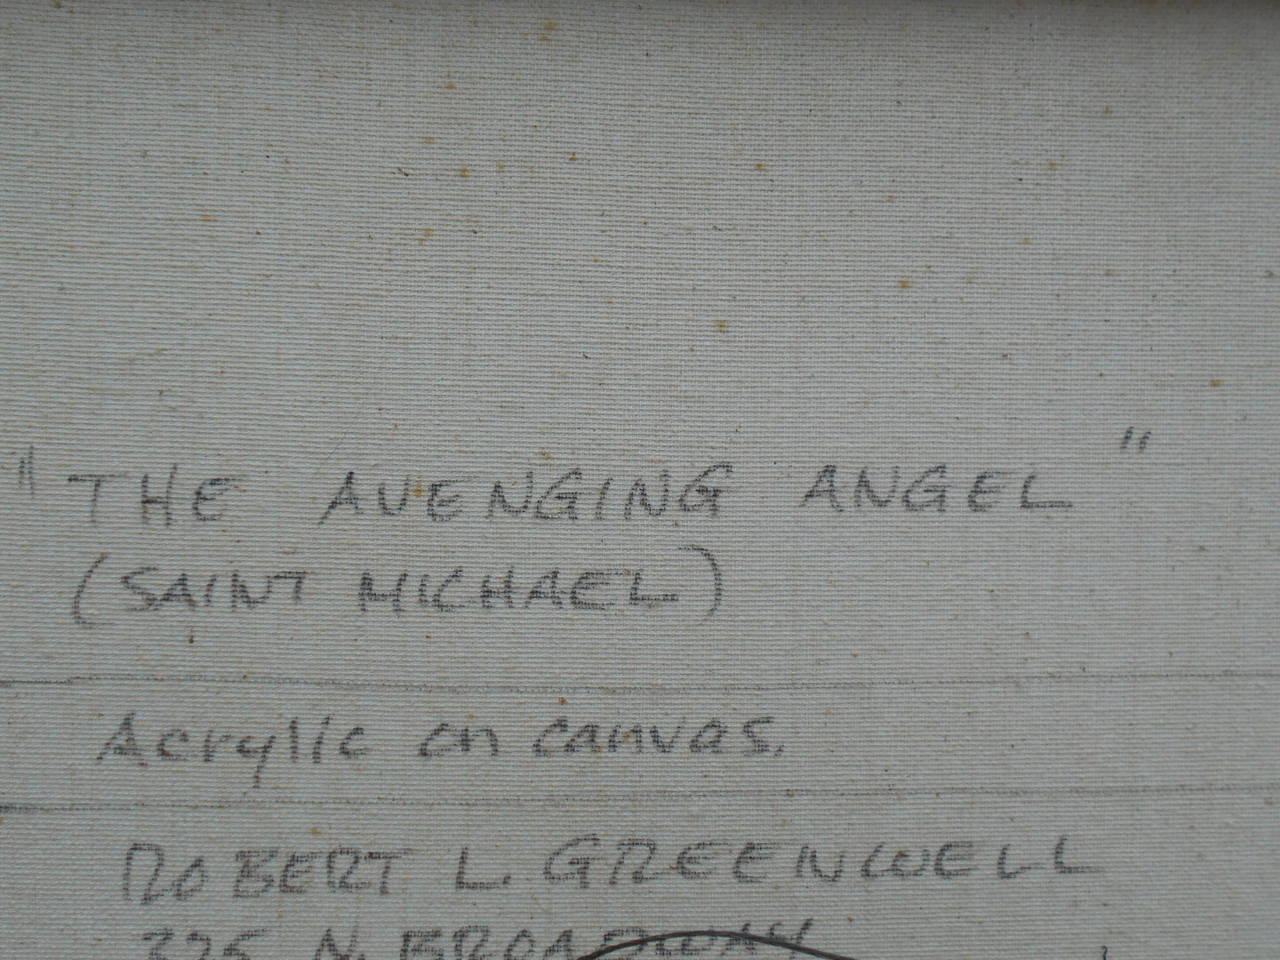 "THE AVENGING ANGEL"
(SAINT MICHAEL)
Acrylic on canvas.
ROBERT L. GREENWELL
325 N. BROADWAY